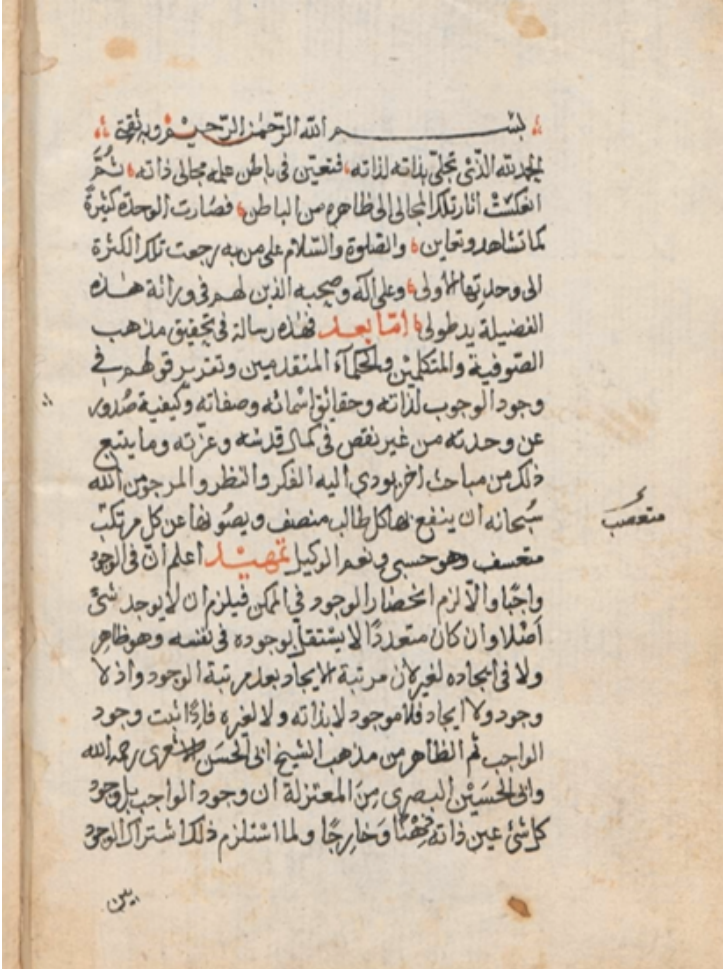 بسم الله الرحمن الرحيم وبه ثقتي
الحمد لله الذي تجلى بذاته لذاته فتعين في باطن علمه مجالي ذاته ثم
انعكست اثار تلك المجالي الى ظاهره من الباطن فصارت الوحدة كثرة
كما تشاهد وتعاين والصلوة والسلام على من به رجعت تلك الكثرة
الى وحدتها الاولى وعلى آله وصحبه الذين لهم في وراثة هذه
الفضيلة يد طولى اما بعد فهذه رسالة في تحقيق مذهب
الصوفية والمتكلمين والحكماء المتقدمين وتقرير قولهم في
وجود الوجوب لذاته وحقائق اسمائه وصفاته وكيفية صدور
عن وحدته من غير نقص في كمال قدسه وعزته وما يتبع
ذلك من مباحث اخر يودي اليه الفكر والنظر والمرجو من الله
سبحانه ان ينفع بها كل طالب منصف ويصونها عن كل مرتكب
متعصب
متعسف وهو حسبي ونعم الوكيل تمهيد اعلم ان في الوجود
واجبا والا لزم انحصار الوجود في الممكن فيلزم ان لا يوجد شئ
اصلا وان كان متعددا لا يستقل بوجوده في نفسه وهو ظاهر
ولا في ايجاده لغيره لان مرتبة الايجاد بعد مرتبة الوجود واذ لا
وجود ولا ايجاد فلا موجود لا بذاته ولا لغيره فاذا ثبت وجود
الواجب ثم الظاهر من مذهب الشيخ ابى الحسن الاشعرى رحمه الله
وابى الحسين البصرى من المعتزلة ان وجود الواجب بل وجود
كل شئ عين ذاته ذهنا وخارجا ولما استلزم ذلك اشتراك الوجود
بين